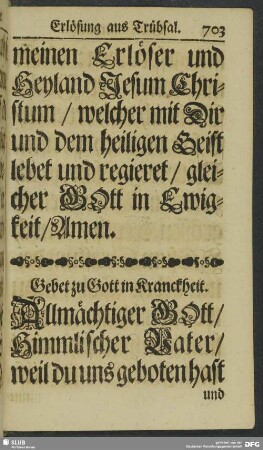 Erlösung aus Trübsal. 703
meinen Erlöser und
Heyland Jesum Chri-
stum / welcher mit Dir
und dem heiligen Geist
lebet und regieret / glei-
cher GOtt in Ewig-
keit / Amen.
Gebet zu Gott in Kranckheit.
Allmächtiger GOtt /
Himmlischer Vater /
weil du uns geboten hast
und
SLUB
DFG